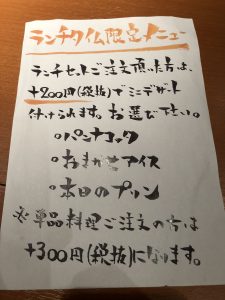 ランチタイム限定メニュー
ランチセットご注文頂いた方は、
+200円(税抜)でミニデザート
付けられます。お選び下さい。
○パンナコッタ
○おまかせアイス
○本日のプリン
※単品料理ご注文の方は
+300円(税抜)になります。